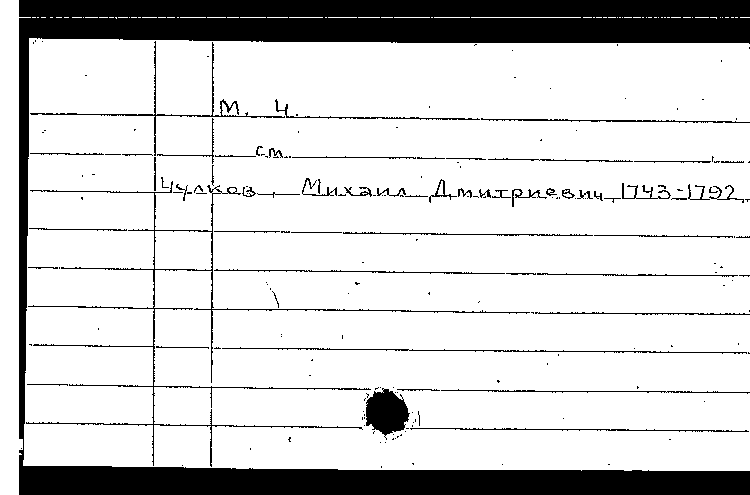 М. Ч.
см
Чулков, Михаил Дмитриевич, 1743-1792.